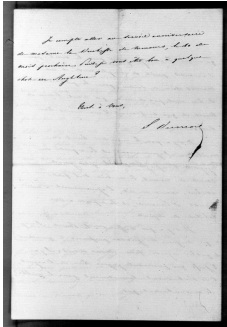 Je compte aller au service anniversaire
de madame la Duchesse de Nemours, le 10 du
mois prochain. Puis-je vous être bon à quelque
chose en Angleterre ?
Tout à vous,